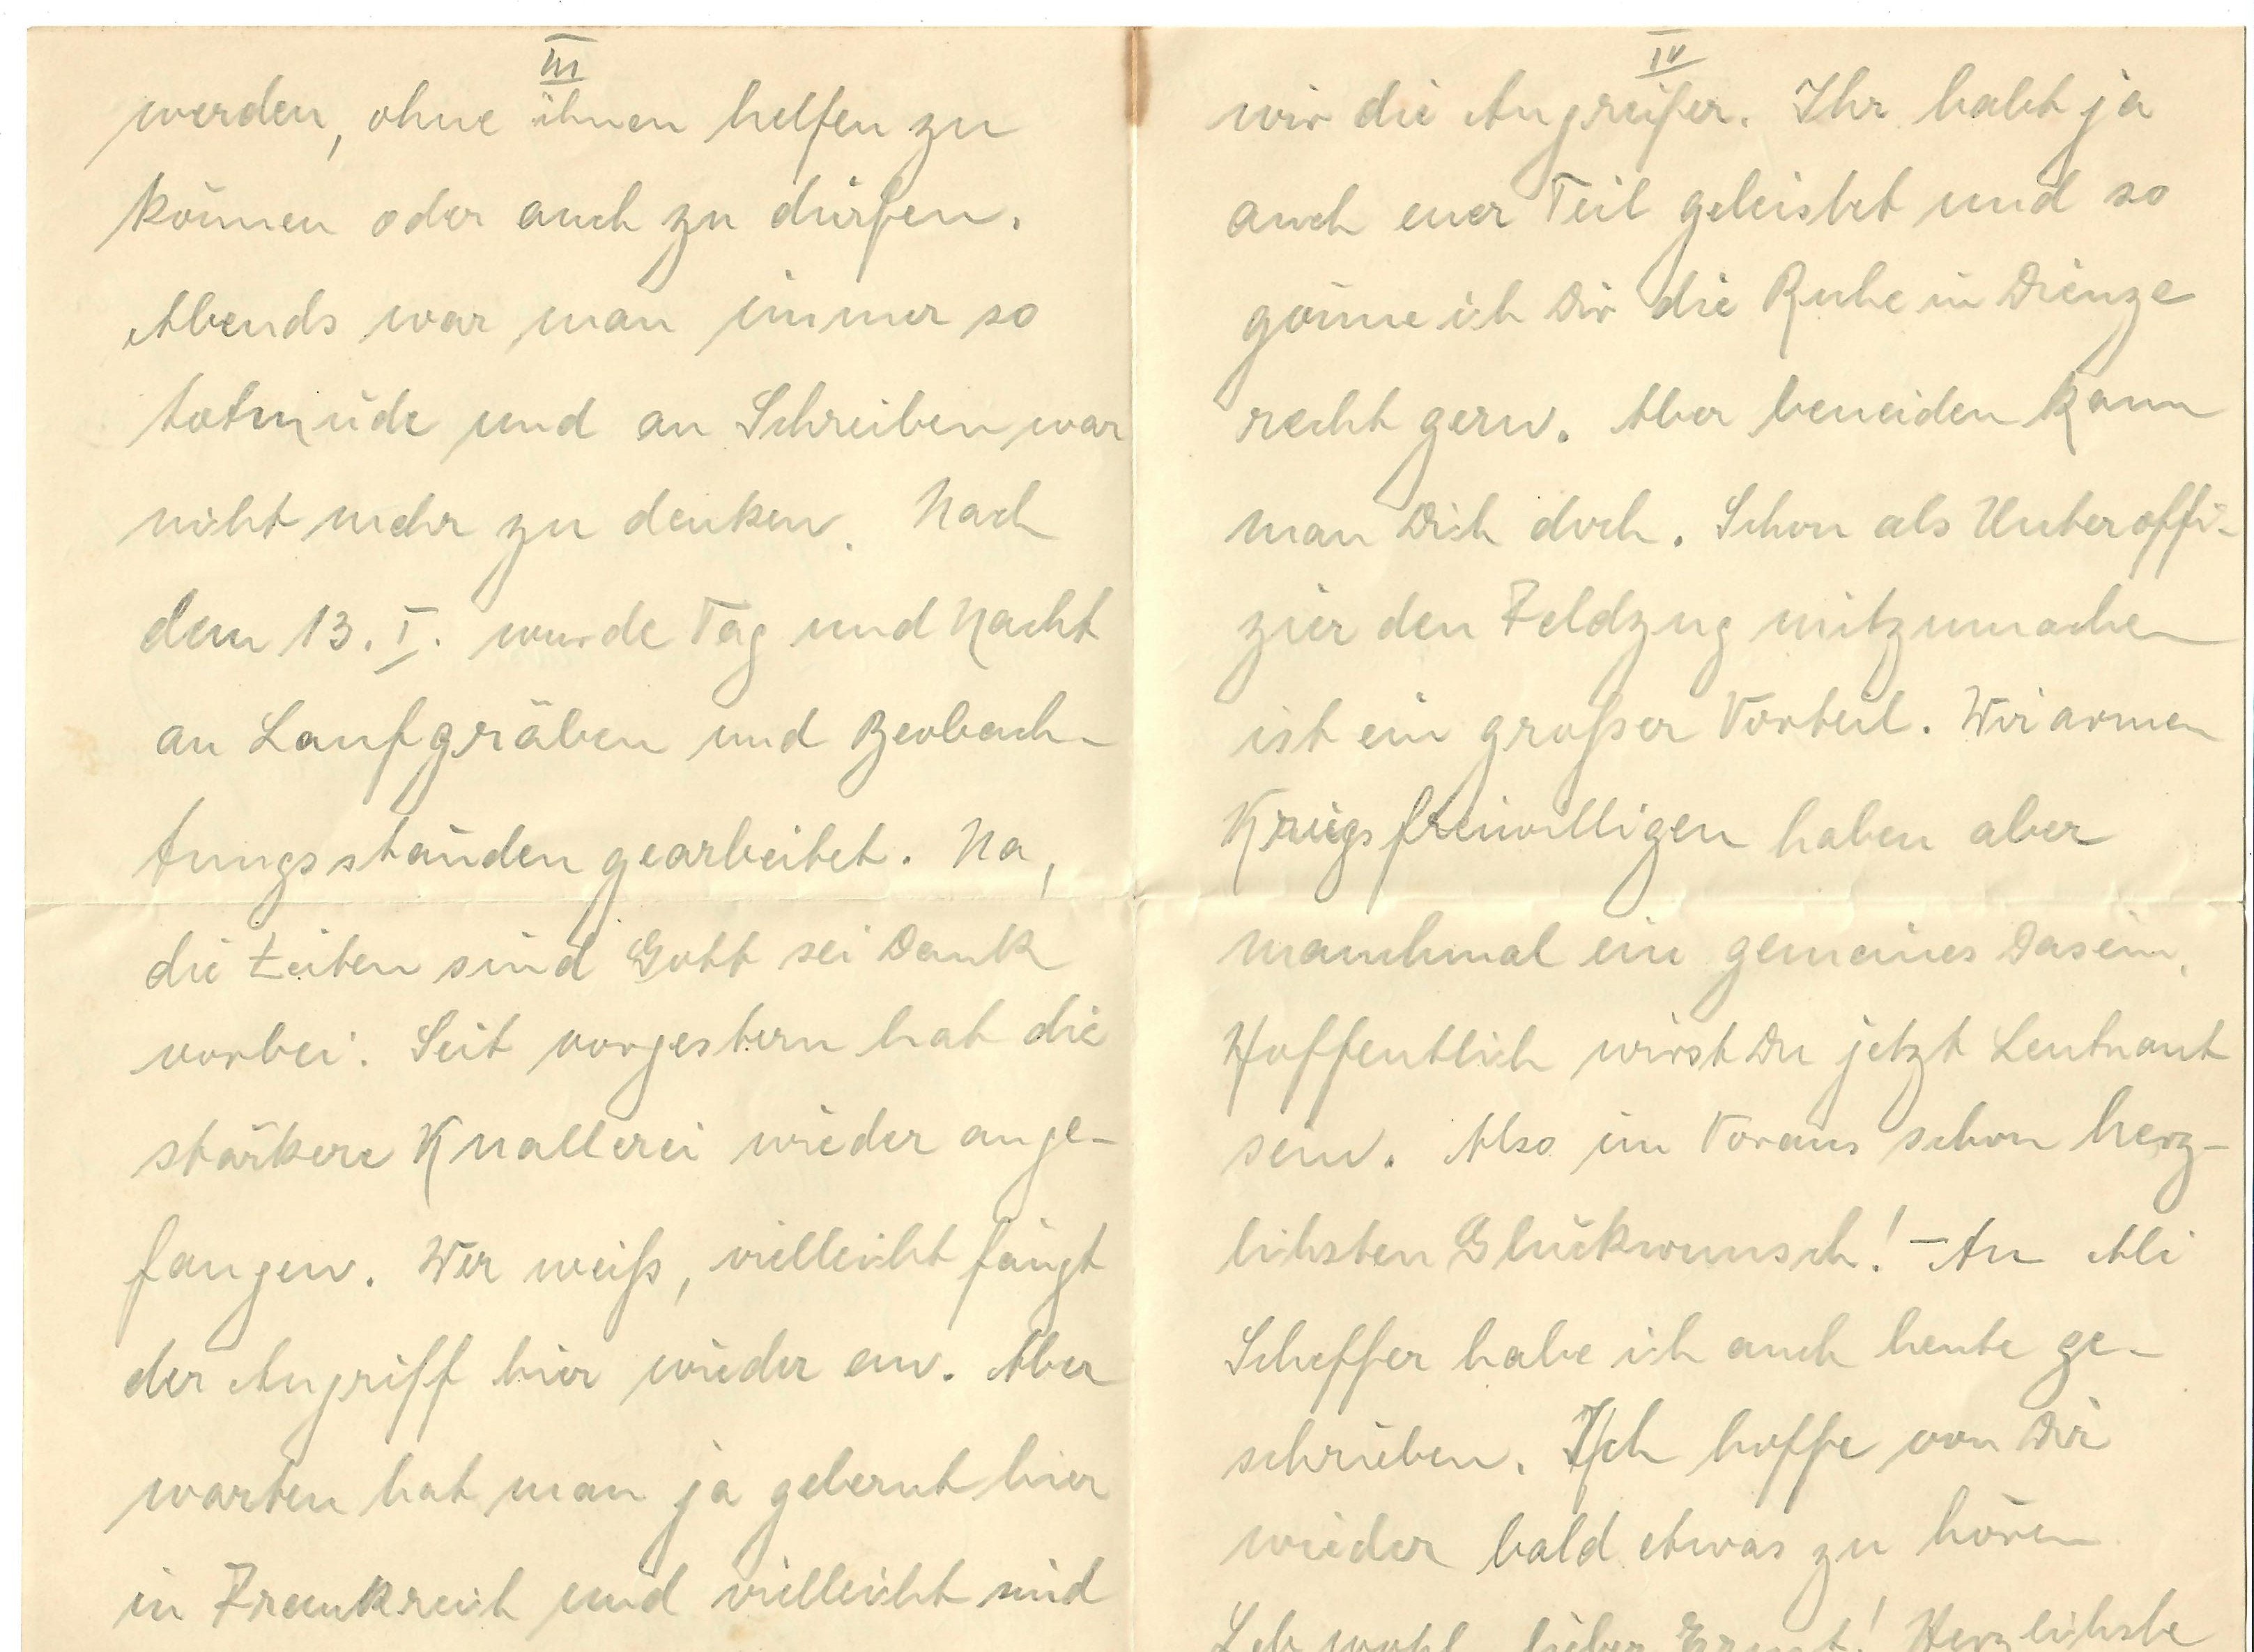 III
werden, ohne ihnen helfen zu
können oder auch zu dürfen.
Abends war man immer so
totmüde und an Schreiben war
nicht mehr zu denken. Nach
dem 13. I. wurde Tag und Nacht
an Laufgräben und Beobach-
tungsständen gearbeitet. Na,
die Zeiten sind Gott sei Dank
vorbei. Seit vorgestern hat die
stärkere Knallerei wieder ange-
fangen. Wer weiß, vielleicht fängt
der Angriff hier wieder an. Aber
warten hat man ja gelernt hier
in Frankreich und vielleicht sind
IV
wir die Angreifer. Ihr habt ja
auch euer Teil geleistet und so
gönne ich Dir die Ruhe in Dieuze
recht gern. Aber beneiden kann
man Dich doch. Schon als Unteroffi-
zier den Feldzug mitzumachen
ist ein großer Vorteil. Wir armen
Kriegsfreiwilligen haben aber
manchmal ein gemeines Dasein.
Hoffentlich wirst Du jetzt Leutnant
sein. Also im Voraus schon herz-
lichsten Glückwunsch! - An Ali
Scheffer habe ich auch heute ge-
schrieben. Ich hoffe von Dir
wieder bald etwas zu hören
Leb wohl, lieber Ernst! Herzlichste